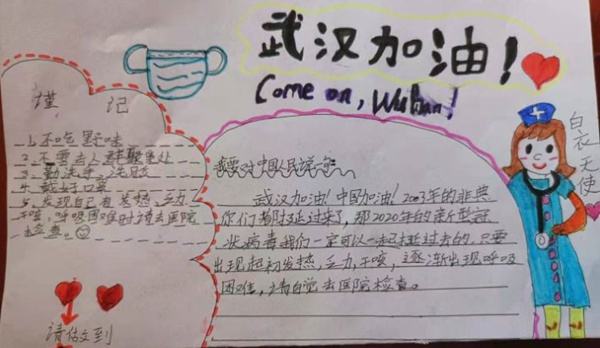 武汉加油！
Come on, Wuhan!
谨记
1、不吃野味
2、不要去人群聚集处
3、勤洗手、洗口
4、戴好口罩
5、发现自己有发热、乏力
干咳，呼吸困难时请去医院
检查。
请做到
我要对中国人民说一
武汉加油！中国加油！2003年的非典
你们都挺过来了，那2020年的新型冠
状病毒我们一定可以一起挺过去的，只要
出现起初发热，乏力，干咳，逐渐出现呼吸
困难，请自觉去医院检查。
白衣天使